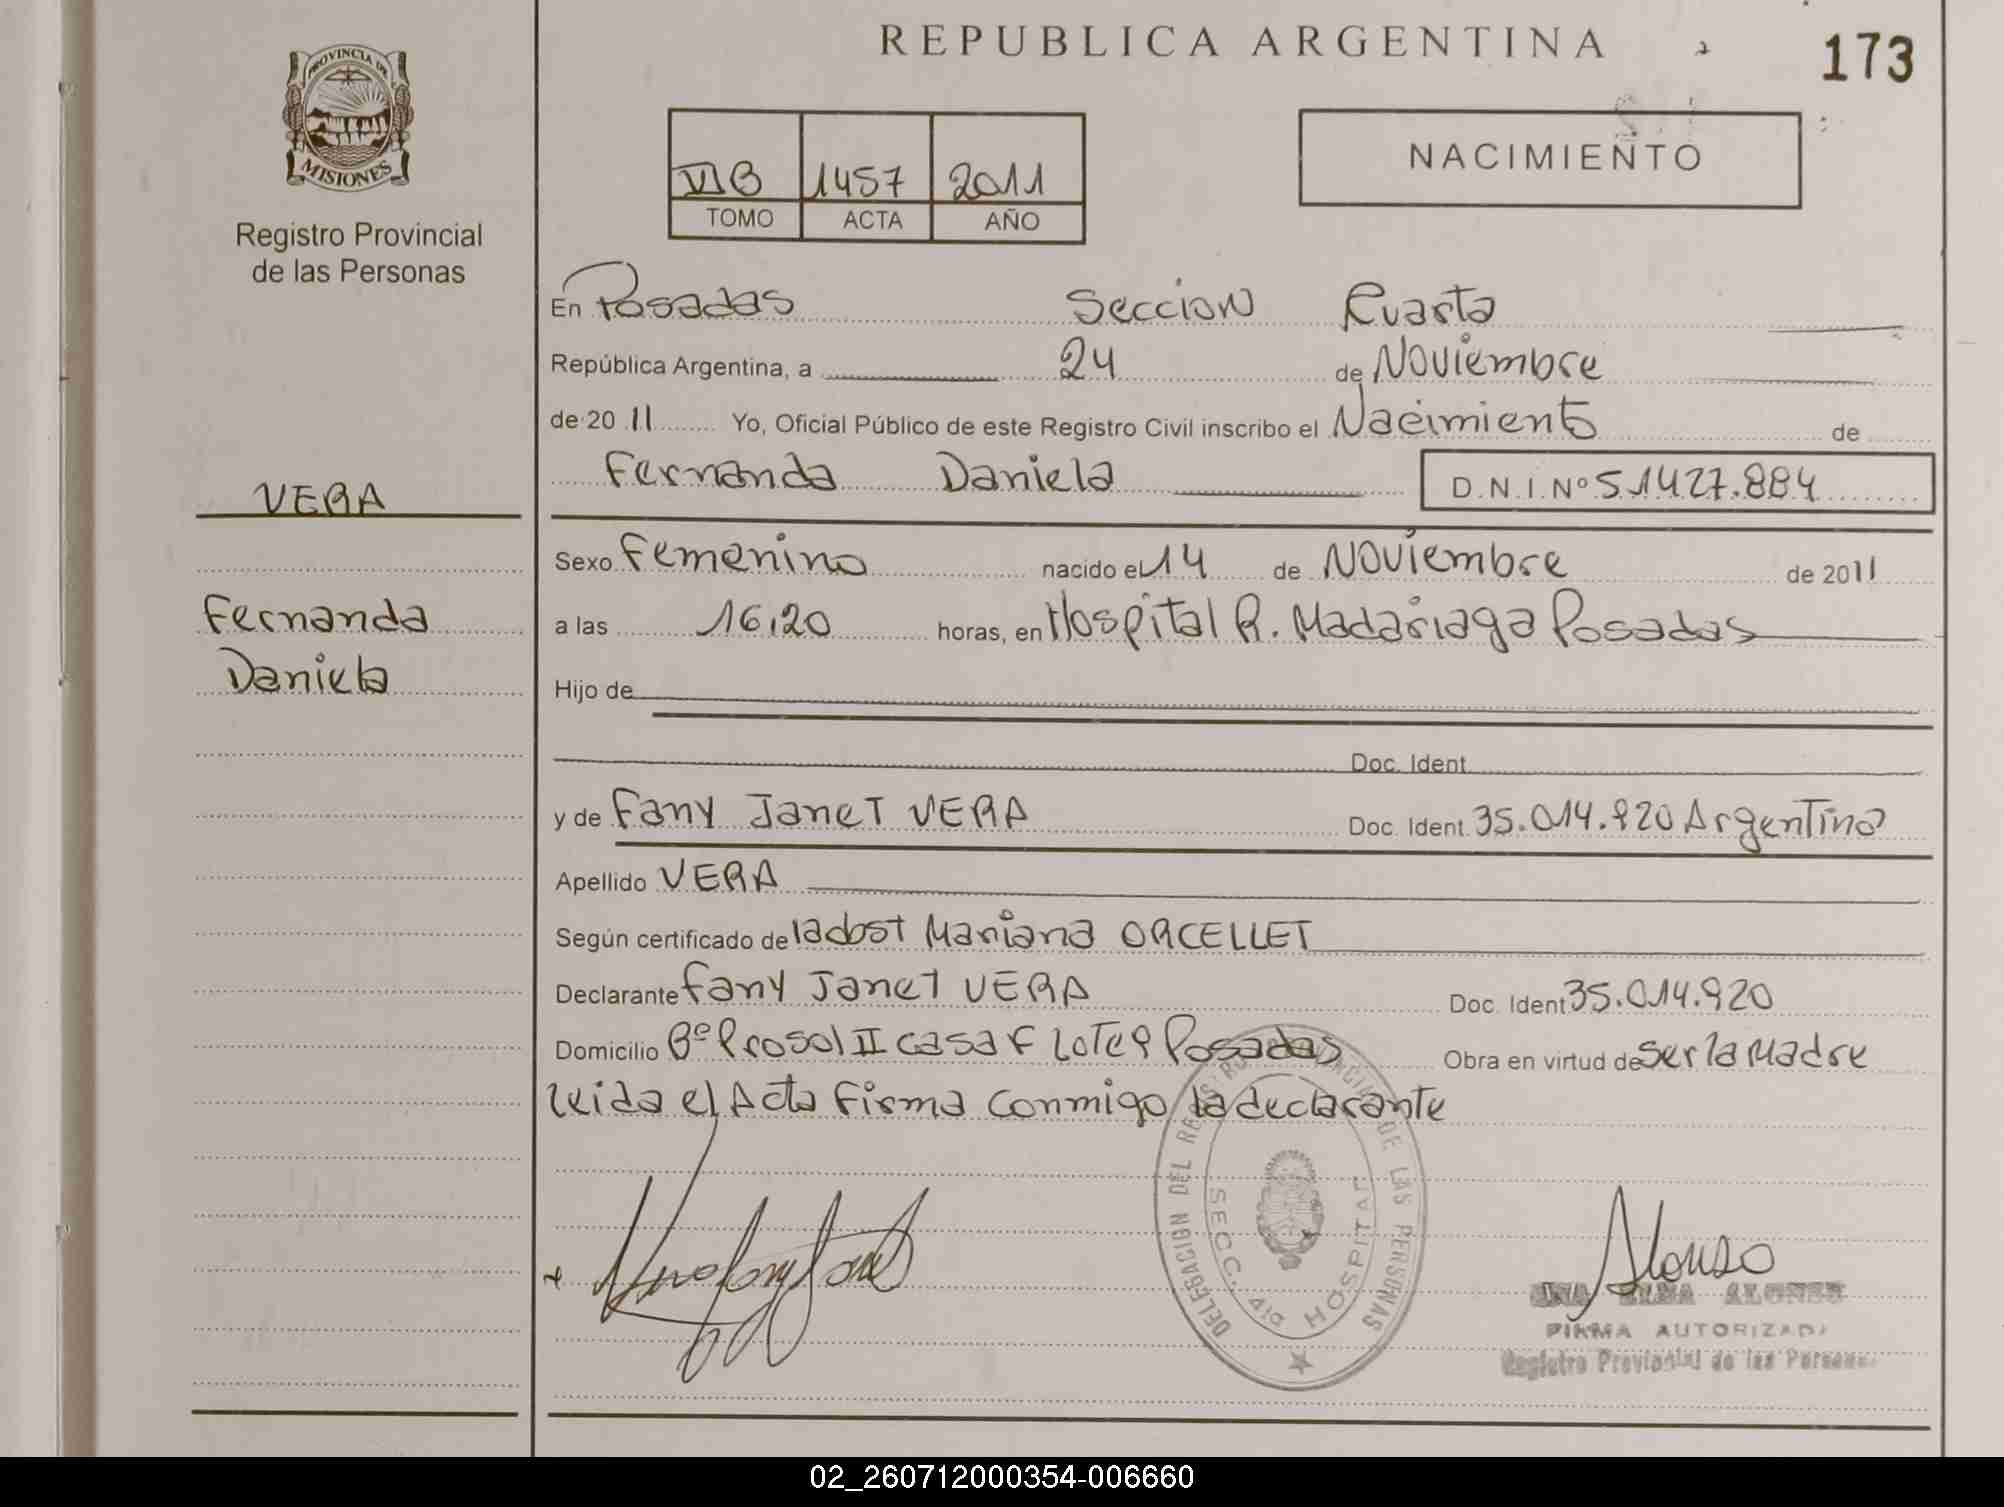 REPUBLICA ARGENTINA
173
PROVINCIA DE
MISIONES
Registro Provincial
de las Personas
VIB 1457 2011
TOMO ACTA AÑO
NACIMIENTO
En Posadas Seccion Cuarta
República Argentina, a 24 de Noviembre
de 20 11 Yo, Oficial Público de este Registro Civil inscribo el Nacimiento de
Fernanda Daniela D.N.I. Nº 51427.884
VERA
Fernanda
Daniela
Sexo Femenino nacido el 14 de Noviembre de 2011
a las 16,20 horas, en Hospital R. Madariaga Posadas
Hijo de
Doc. Ident
y de Fany Janet VERA Doc. Ident. 35.014.920 Argentina
Apellido VERA
Según certificado de ladost Mariana ORCELLET
Declarante Fany Janet VERA Doc. Ident 35.014.920
Domicilio Bº Prosol II casa F Lote 9 Posadas Obra en virtud de ser la Madre
leida el Acta Firma conmigo la declarante
DELEGACION DEL REGISTRO PROVINCIAL DE LAS PERSONAS
SECC. 4ta HOSPITAL
Alonso
ANA ELSA ALONSO
FIRMA AUTORIZADA
Registro Provincial de las Personas
02_260712000354-006660